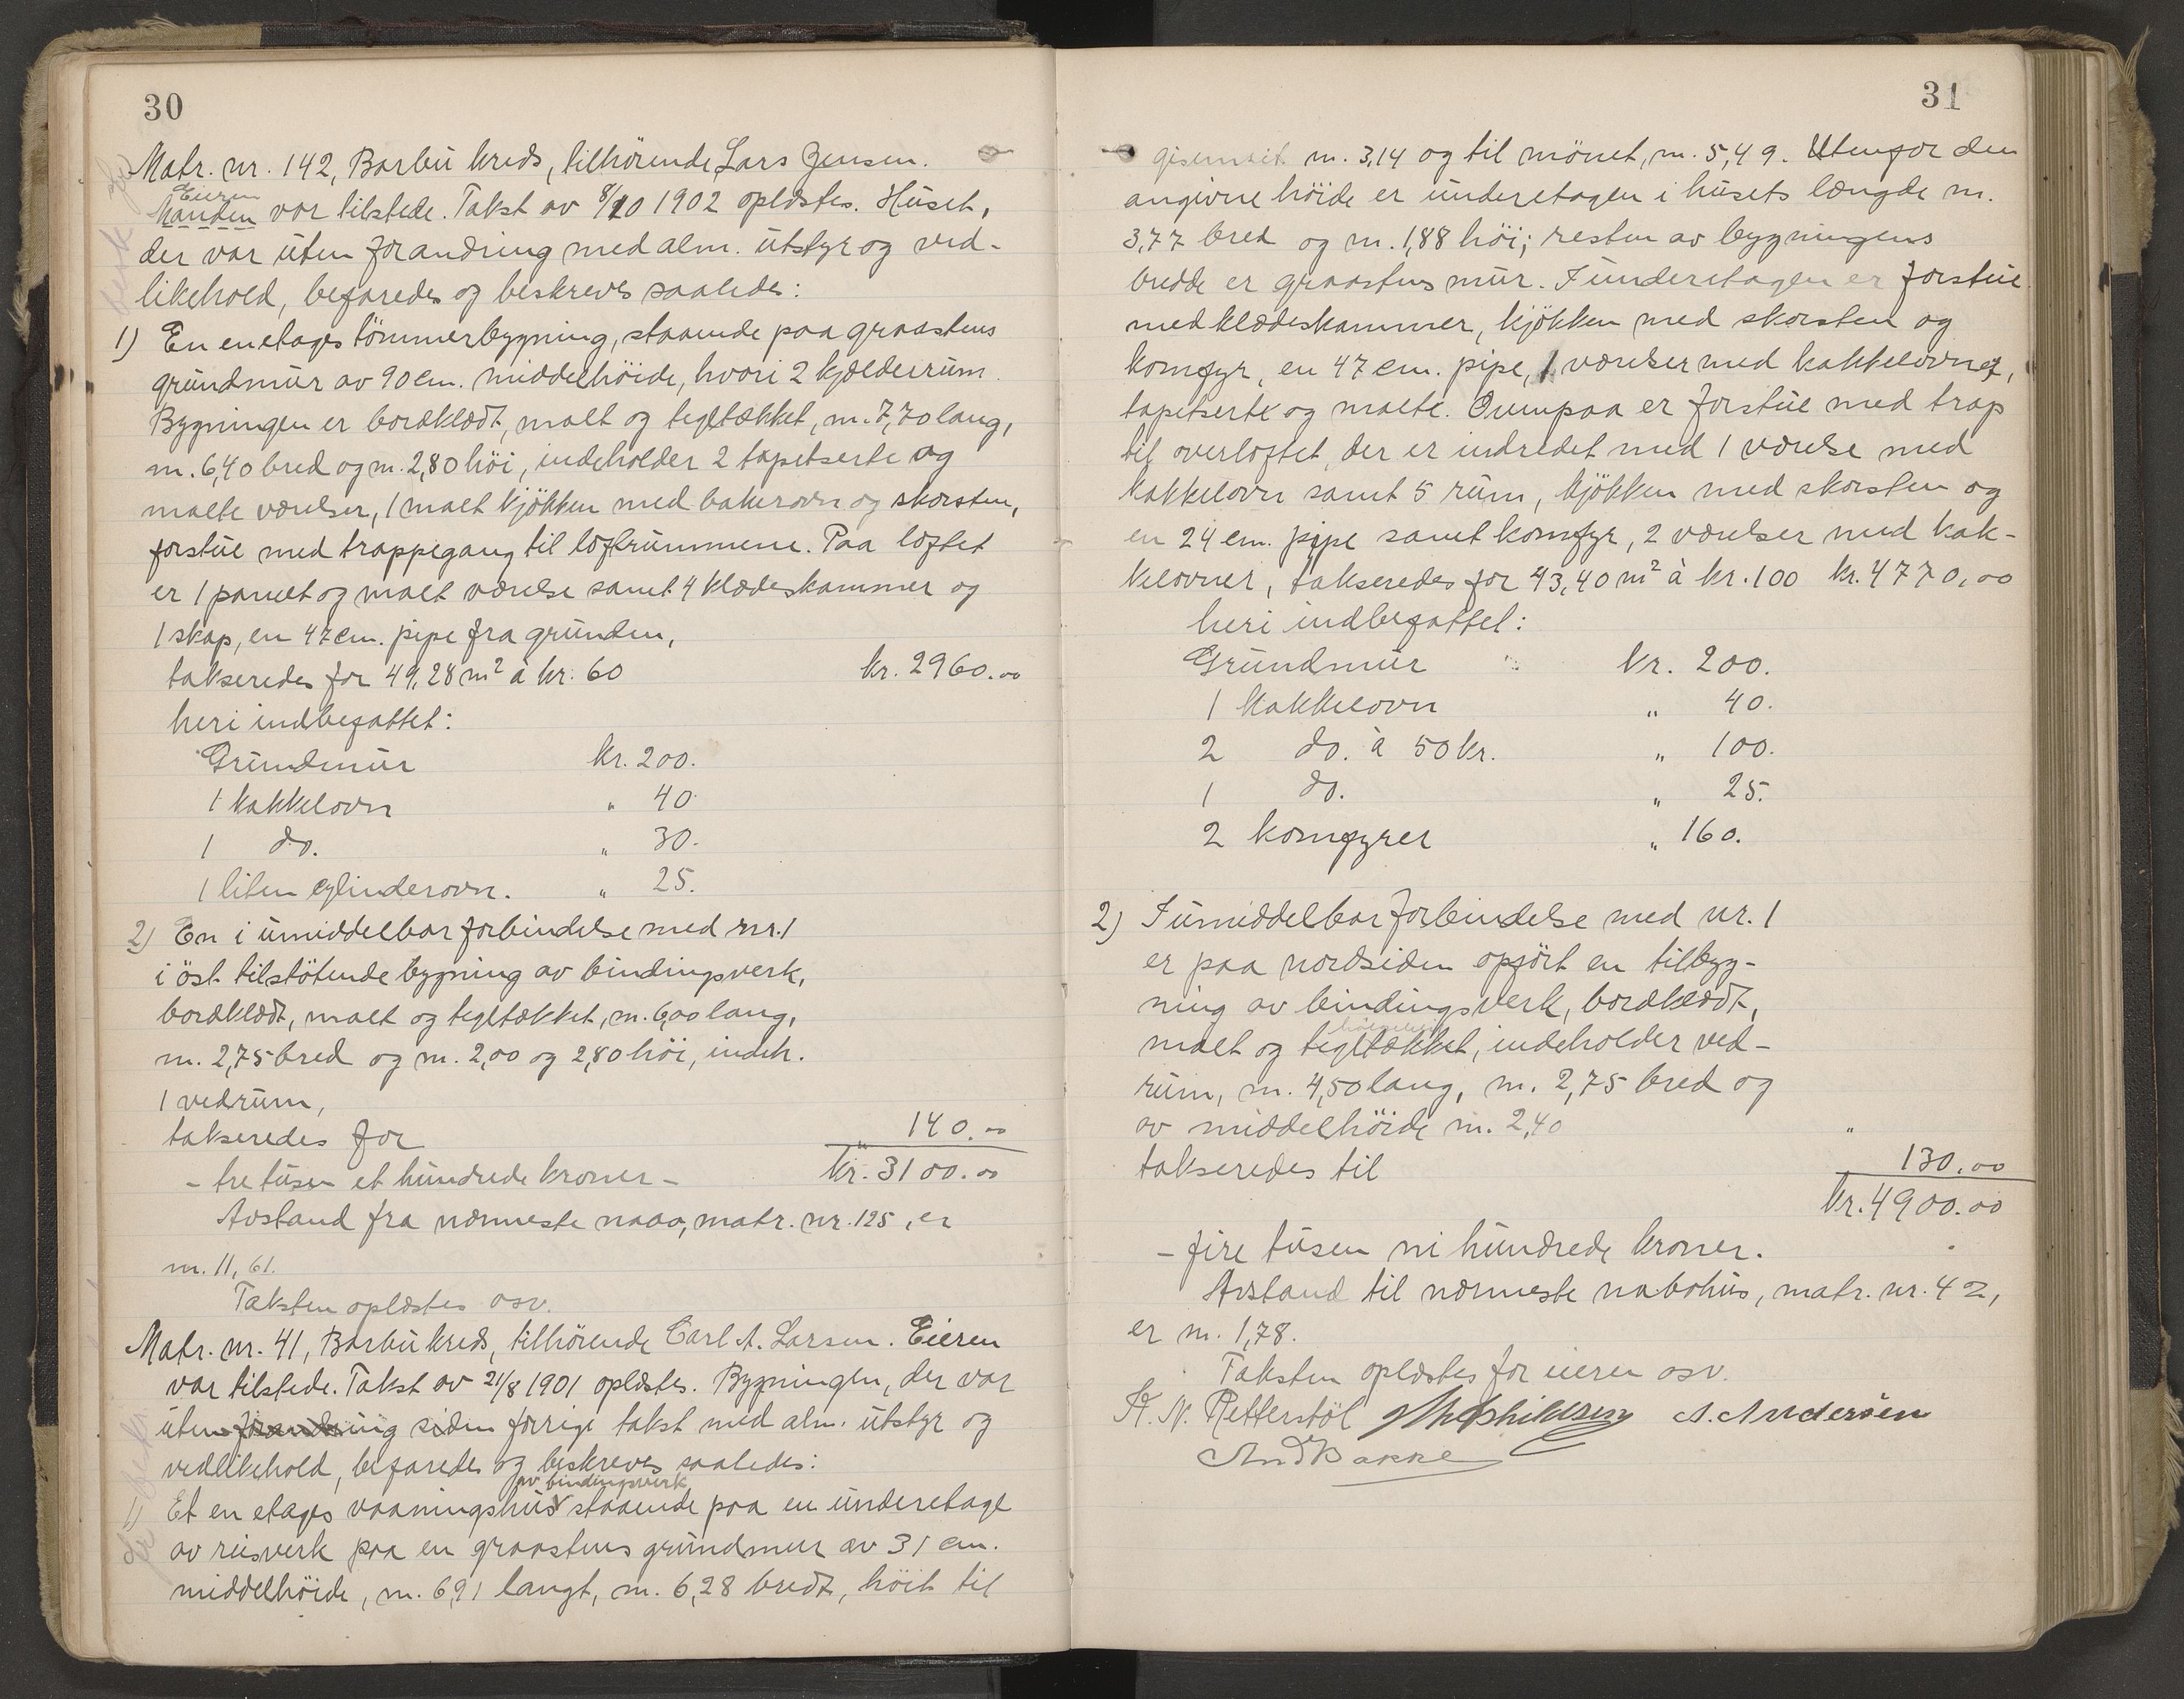 30
Matr. nr. 142, Barbu kreds, tilhörende Lars Jensen.
Eieren
Manden var tilstede. Takst av 8/10 1902 oplæstes. Huset,
der var uten forandring med alm. utstyr og ved-
likehold, befaredes og beskreves saaledes:
1) En enetages tömmerbygning, staaende paa graastens
grundmur av 90 cm. middelhöide, hvori 2 kjælderrum.
Bygningen er bordklædt, malt og tegltækket, m. 7,70 lang,
m. 6,40 bred og m. 2,80 höi, indeholder 2 tapetserte og
malte værelser, 1 malt kjökken med bakerovn og skorsten,
forstue med trappegang til loftrummene. Paa loftet
er 1 panelt og malt værelse samt 4 klædeskammer og
1 skap, en 47 cm. pipe fra grunden,
takseredes for 49,28 m² à kr. 60 kr. 2960.00
heri indbefattet:
Grundmur kr. 200.
1 kakkelovn " 40.
1 do. " 30.
1 liten cylinderovn. " 25.
2) En i umiddelbar forbindelse med nr. 1
i öst tilstötende bygning av bindingsverk,
bordklædt, malt og tegltækket, m. 6,00 lang,
m. 2,75 bred og m. 2,00 og 2,80 höi, indeh.
1 vedrum,
takseredes for " 140.00
- tre tusen et hundrede kroner - kr. 3100.00
Avstand fra nærmeste nabo, matr. nr. 125, er
m. 11,61.
Taksten oplæstes osv.
Matr. nr. 41, Barbu kreds, tilhörende Carl A. Larsen. Eieren
var tilstede. Takst av 21/8 1901 oplæstes. Bygningen, der var
uten forandring siden forrige takst med alm. utstyr og
vedlikehold, befaredes og beskreves saaledes:
av bindingsverk
1) Et en etages vaaningshus staaende paa en underetage
av reisverk paa en graastens grundmur av 31 cm.
middelhöide, m. 6,91 langt, m. 6,28 bredt, höit til
31
m. 3,14 og til mönet, m. 5,49. Utenfor den
angivne höide er underetagen i husets længde m.
3,77 bred og m. 1,88 höi; resten av bygningens
bredde er graastens mur. I underetagen er forstue
med klædeskammer, kjökken med skorsten og
komfyr, en 47 cm. pipe, 1 værelser med kakkelovn,
tapetserte og malte. Ovenpaa er forstue med trap
til overloftet, der er indredet med 1 værelse med
kakkelovn samt 5 rum, kjökken med skorsten og
en 24 cm. pipe samt komfyr, 2 værelser med kak-
kelovner, takseredes for 43,40 m² à kr. 100 kr. 4770,00
heri indbefattet:
Grundmur kr. 200.
1 kakkelovn " 40.
2 do. à 50 kr. " 100.
1 do. " 25.
2 komfyrer " 160.
2) I umiddelbar forbindelse med nr. 1
er paa nordsiden opfört en tilbyg-
ning av bindingsverk, bordklædt,
malt og tegltækket, indeholder ved-
rum, m. 4,50 lang, m. 2,75 bred og
av middelhöide m. 2,40
takseredes til " 130,00
kr. 4900.00
- fire tusen ni hundrede kroner.
Avstand til nærmeste nabohus, matr. nr. 42,
er m. 1,78.
Taksten oplæstes for eieren osv.
K. N. Retterstöl A. Andersen
And Bakke